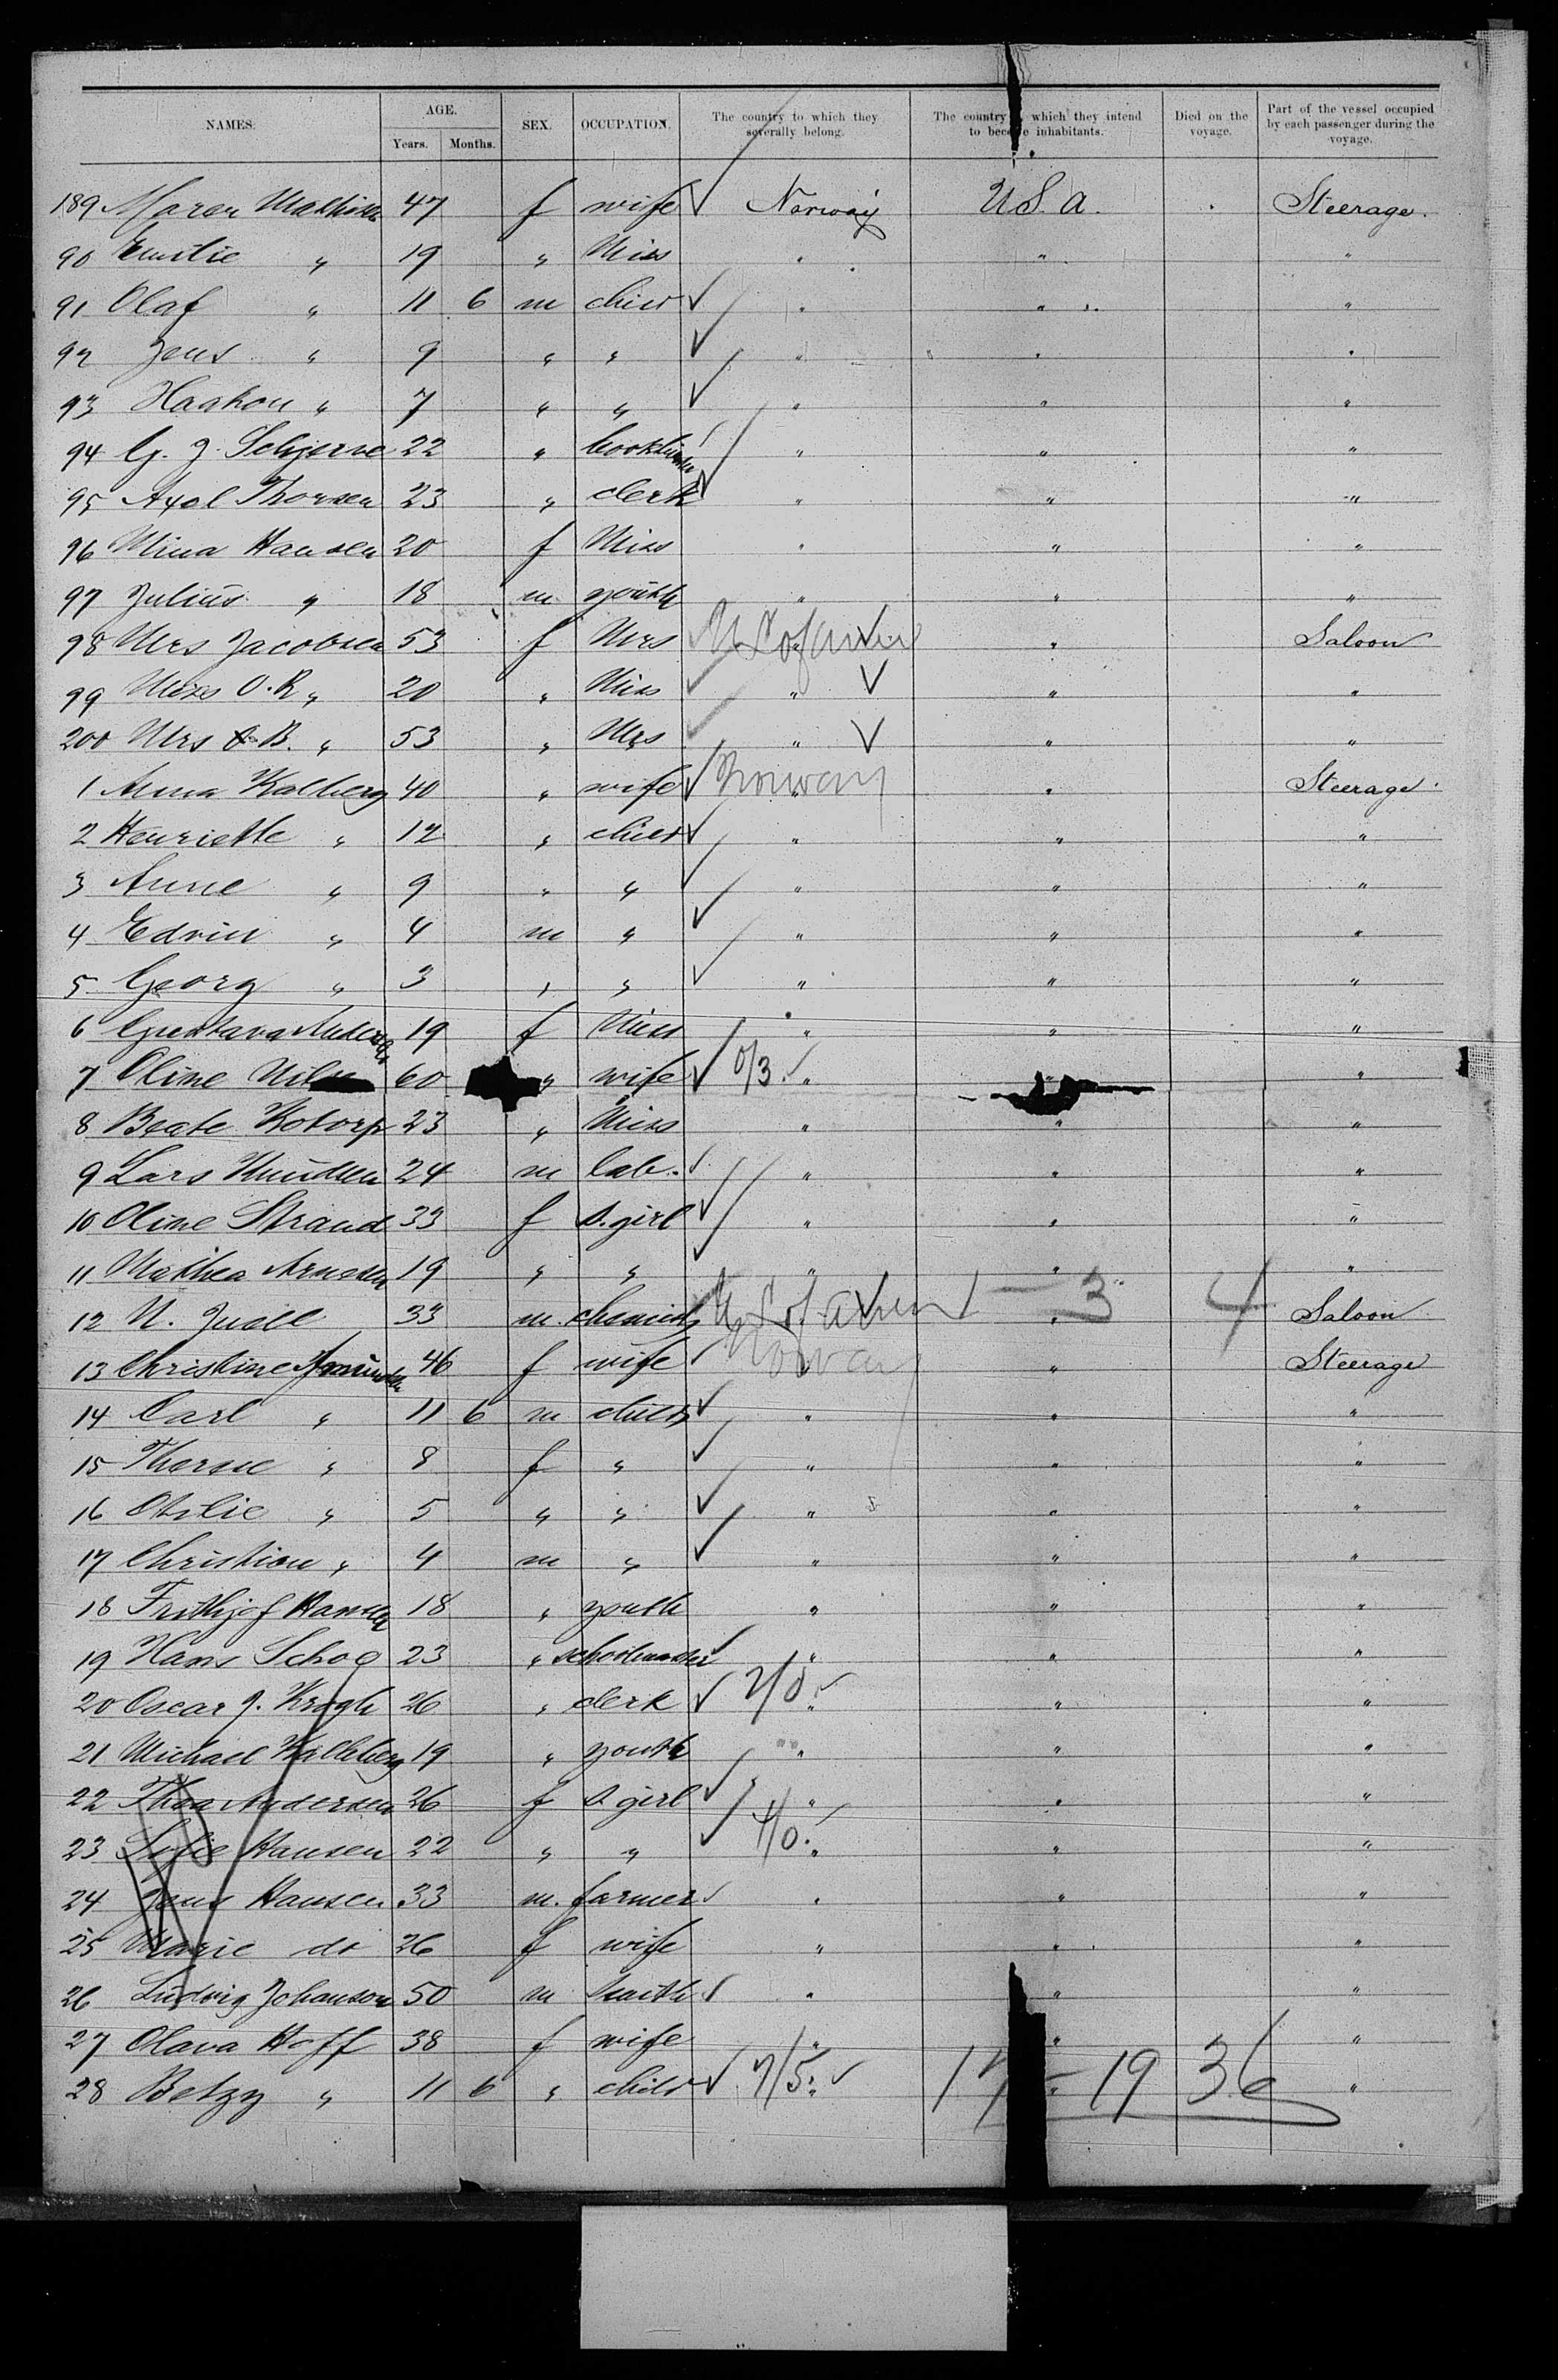 NAMES. AGE. Years. Months. SEX. OCCUPATION. The country to which they severally belong. The country which they intend to become inhabitants. Died on the voyage. Part of the vessel occupied by each passenger during the voyage.
189 Maren Mathisen 47 f wife Norway U.S.A. Steerage.
90 Emilie " 19 " Miss " " "
91 Olaf " 11 6 m child " " "
92 Jens " 9 " " " " "
93 Haakon " 7 " " " " "
94 G. J. Schjerve 22 " bookbinder " " "
95 Axel Thorsen 23 " clerk " " "
96 Mina Hansen 20 f Miss " " "
97 Julius " 18 m youth " " "
98 Mrs Jacobsen 53 f Mrs " " Saloon
99 Miss O. R " 20 " Miss " " "
200 Mrs B. " 53 " Mrs " " "
1 Anna Kalberg 40 " wife Norway " Steerage
2 Henriette " 12 " child " " "
3 Anne " 9 " " " " "
4 Edvin " 4 m " " " "
5 Georg " 3 " " " " "
6 Gustava 19 f Miss " " "
7 Oline 60 " wife 0/3. " "
8 Beate 23 " Miss " " "
9 Lars Knudsen 24 m lab. " " "
10 Oline Strand 33 f s. girl " " "
11 Mathea Arnesen 19 " " " " "
12 N. Juell 33 m. 1 - 3 4 Saloon
13 Christine 46 f wife Norway " Steerage
14 Carl " 11 6 m child " " "
15 " 8 f " " " "
16 Otilie " 5 " " " " "
17 Christian " 4 m " " " "
18 Frithjof Hansen 18 " youth " " "
19 Hans 23 " schoolmaster " " "
20 Oscar J. Krogh 26 " clerk 2/0. " " "
21 Michael 19 " youth " " "
22 Thea Andersen 26 f s. girl " " "
23 Sofie Hansen 22 " " 4/0. " " "
24 Jens Hansen 33 m. farmer " " "
25 Marie do 26 f wife " " "
26 Ludvig Johanson 50 m smith " " "
27 Olava Hoff 38 f wife " " "
28 Betzy " 11 6 " child 7/5. 17 - 19 36 "